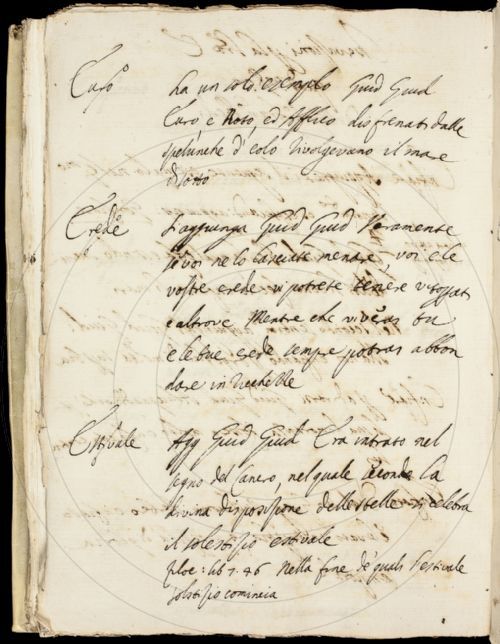 Euro ha un solo exemplo Guid Giud
Euro e Noto, ed Affrico disfrenati dalle
spelunche d'Eolo rivolgevano il mare
di sotto
Erede S'aggiunga Guid Giud Veramente
se voi ne lo lasciate menare, voi e le
vostre erede vi potrete tenere vitoperati
e altrove Mentre che viverai tu
e le tue erede sempre potrai abbon
dare in ricchezze
Estivale Agg Guid Giud Era intrato nel
segno del cancro, nel quale secondo la
divina disposizione delle stelle si celebra
il solestizio estivale
lib 7. 46 Nella fine de quali l'estivale
solstizio comincia